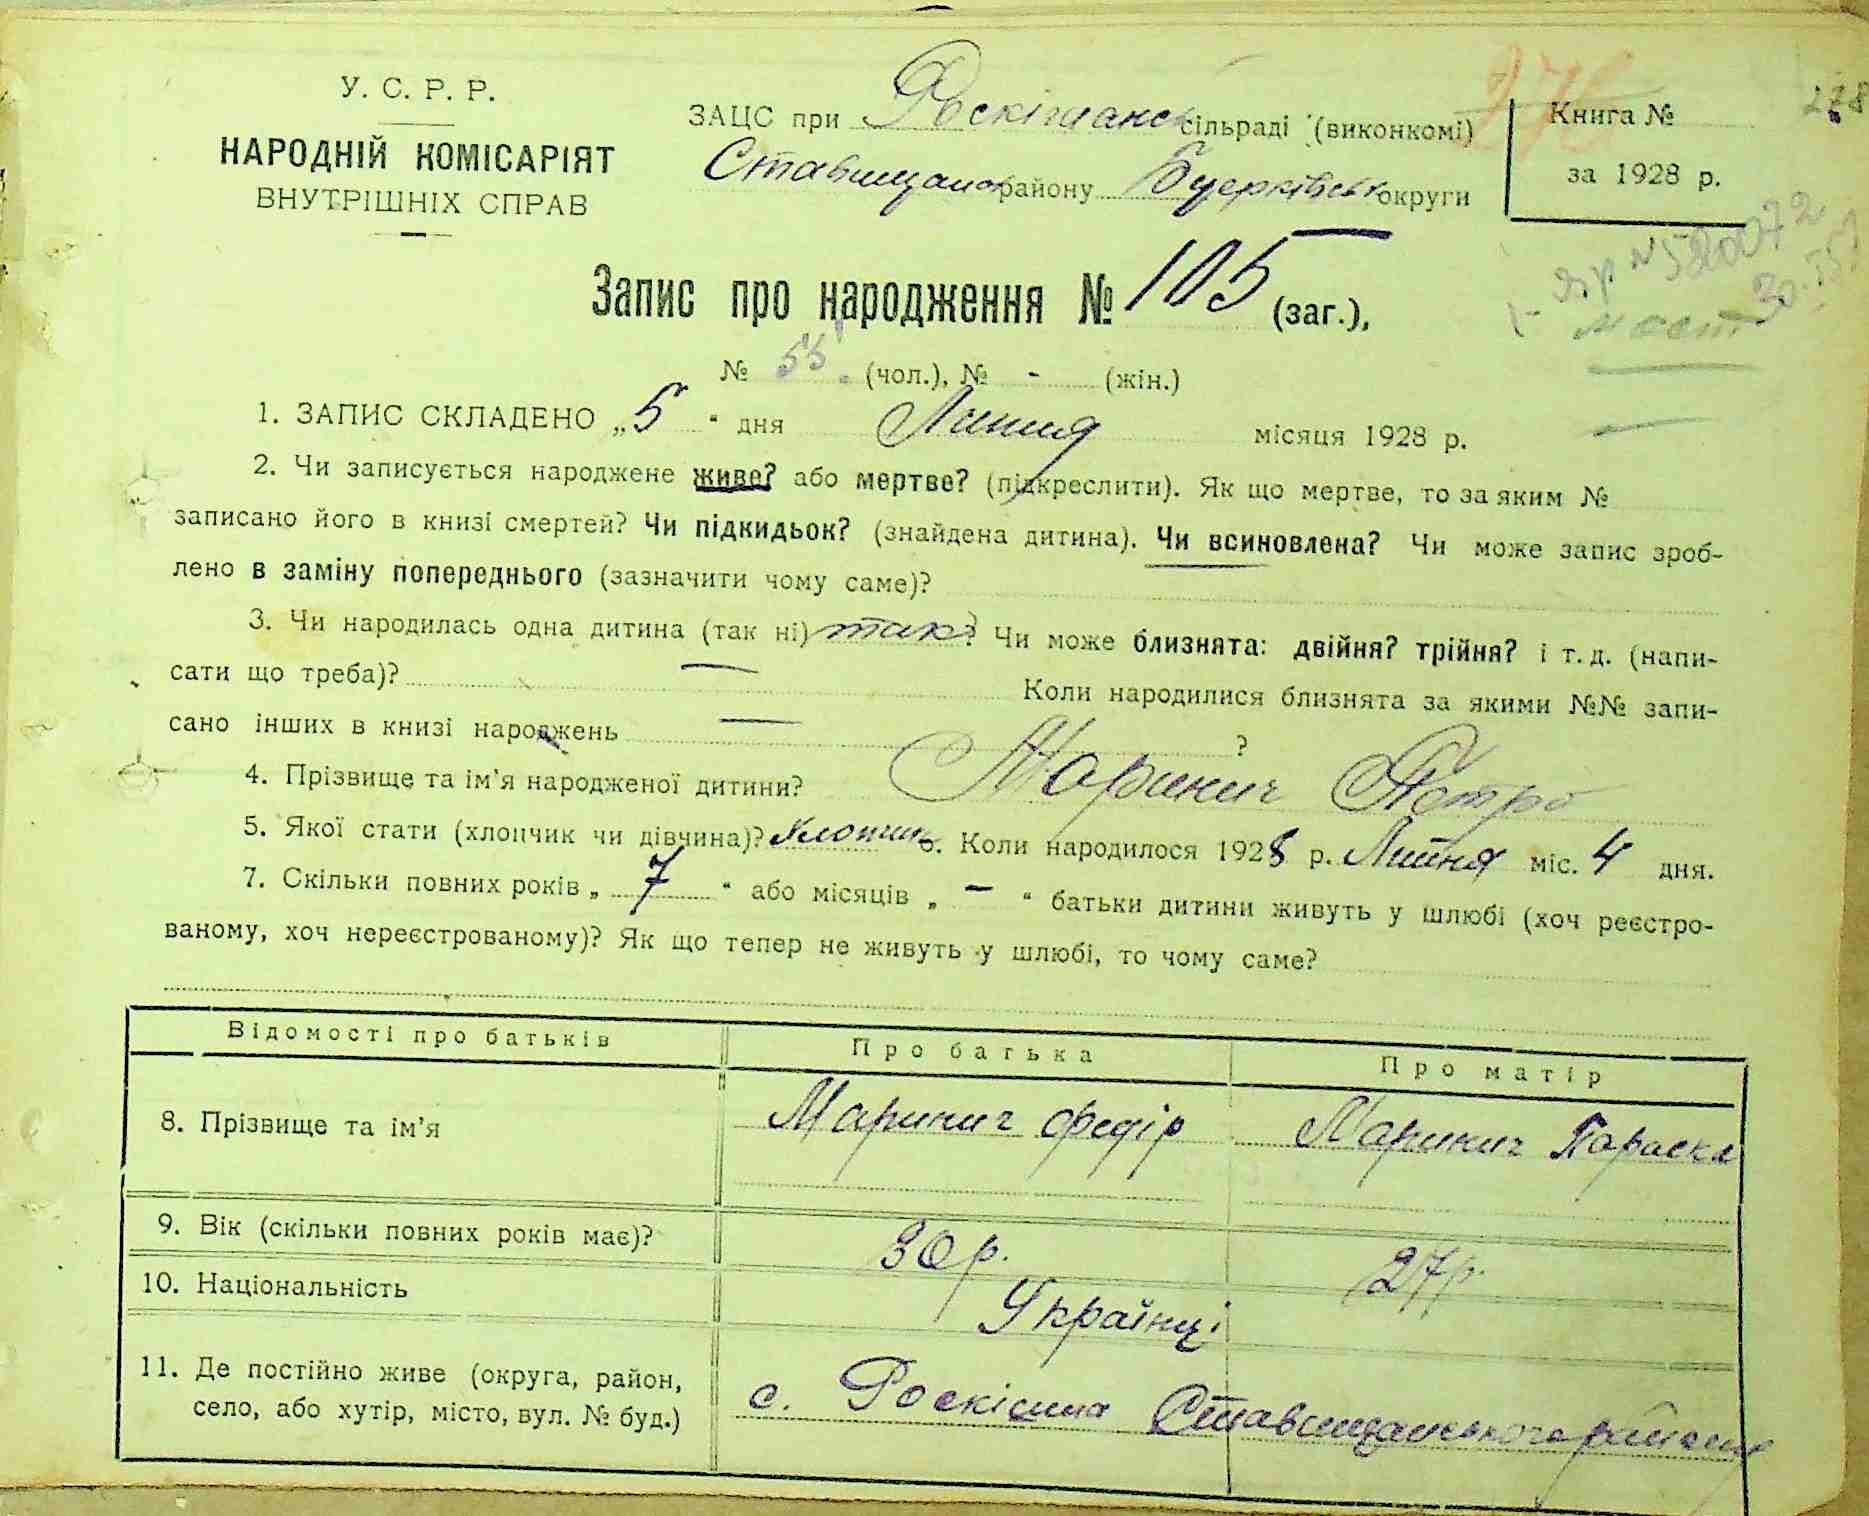 У. С. Р. Р.
НАРОДНІЙ КОМІСАРІЯТ
ВНУТРІШНІХ СПРАВ
ЗАЦС при Роскішанс сільраді (виконкомі)
Ставищанськ району Б церківськ округи
Книга №
за 1928 р.
278
Запис про народження № 105 (заг.),
№ 55 (чол.), № - (жін.)
1. ЗАПИС СКЛАДЕНО „5" дня Липня місяця 1928 р.
2. Чи записується народжене живе? або мертве? (підкреслити). Як що мертве, то за яким №
записано його в книзі смертей? Чи підкидьок? (знайдена дитина). Чи всиновлена? Чи може запис зроб-
лено в заміну попереднього (зазначити чому саме)?
3. Чи народилась одна дитина (так ні) так? Чи може близнята: двійня? трійня? і т. д. (напи-
сати що треба)? — Коли народилися близнята за якими №№ запи-
сано інших в книзі народжень — ?
4. Прізвище та ім'я народженої дитини? Маринич Петро
5. Якої стати (хлопчик чи дівчина)? Хлопчик 6. Коли народилося 1928 р. Липня міс. 4 дня.
7. Скільки повних років „7" або місяців „—" батьки дитини живуть у шлюбі (хоч реєстро-
ваному, хоч нереєстрованому)? Як що тепер не живуть у шлюбі, то чому саме?
Відомості про батьків Про батька Про матір
8. Прізвище та ім'я Маринич Федір Маринич Параска
9. Вік (скільки повних років має)? 30 р. 27 р.
10. Національність Українці
11. Де постійно живе (округа, район,
село, або хутір, місто, вул. № буд.) с. Роскішна Ставищанського району